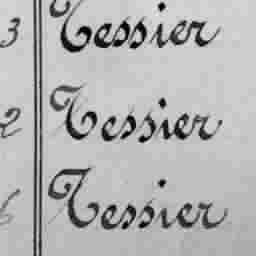 3 Tessier
2 Tessier
6 Tessier